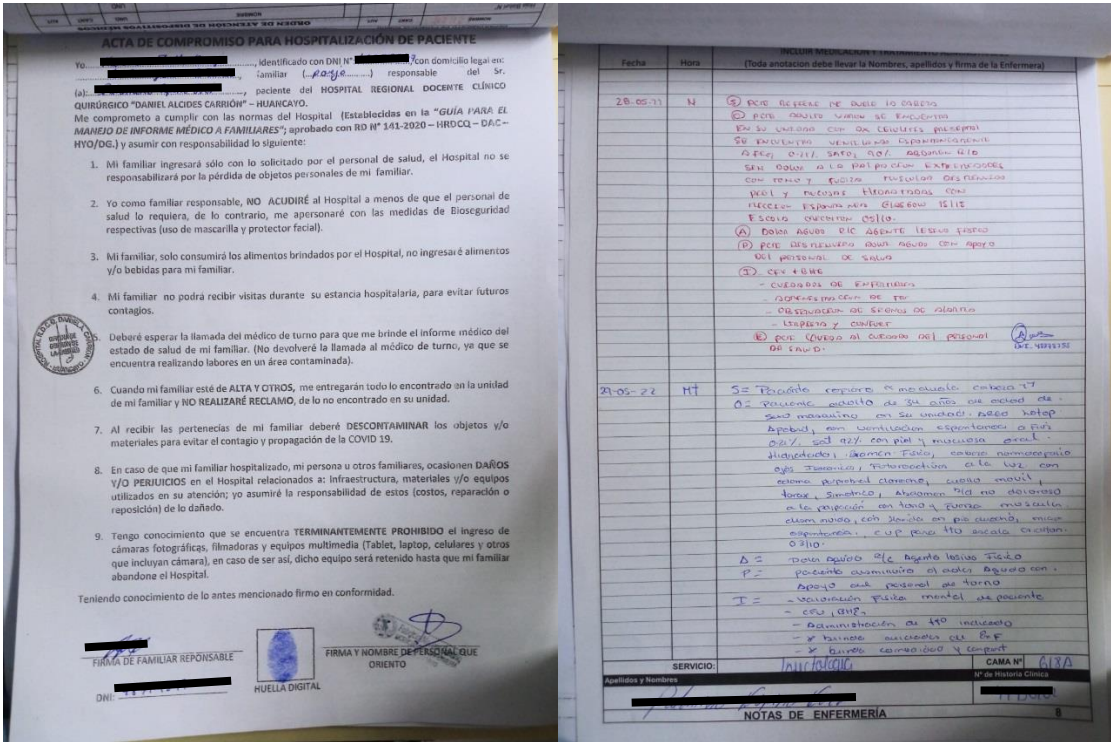 ORDEN DE ATENCIÓN DE DISPOSITIVOS MÉDICOS
NOMBRE
ACTA DE COMPROMISO PARA HOSPITALIZACIÓN DE PACIENTE
Yo, identificado con DNI N° con domicilio legal en:
familiar ( ) responsable del Sr.
(a): , paciente del HOSPITAL REGIONAL DOCENTE CLÍNICO
QUIRÚRGICO "DANIEL ALCIDES CARRIÓN" – HUANCAYO.
Me comprometo a cumplir con las normas del Hospital (Establecidas en la "GUÍA PARA EL
MANEJO DE INFORME MÉDICO A FAMILIARES"; aprobado con RD N° 141-2020 – HRDCQ – DAC –
HYO/DG.) y asumir con responsabilidad lo siguiente:
1. Mi familiar ingresará sólo con lo solicitado por el personal de salud, el Hospital no se
responsabilizará por la pérdida de objetos personales de mi familiar.
2. Yo como familiar responsable, NO ACUDIRÉ al Hospital a menos de que el personal de
salud lo requiera, de lo contrario, me apersonaré con las medidas de Bioseguridad
respectivas (uso de mascarilla y protector facial).
3. Mi familiar, solo consumirá los alimentos brindados por el Hospital, no ingresaré alimentos
y/o bebidas para mi familiar.
4. Mi familiar no podrá recibir visitas durante su estancia hospitalaria, para evitar futuros
contagios.
5. Deberé esperar la llamada del médico de turno para que me brinde el informe médico del
estado de salud de mi familiar. (No devolveré la llamada al médico de turno, ya que se
encuentra realizando labores en un área contaminada).
6. Cuando mi familiar esté de ALTA Y OTROS, me entregarán todo lo encontrado en la unidad
de mi familiar y NO REALIZARÉ RECLAMO, de lo no encontrado en su unidad.
7. Al recibir las pertenecías de mi familiar deberé DESCONTAMINAR los objetos y/o
materiales para evitar el contagio y propagación de la COVID 19.
8. En caso de que mi familiar hospitalizado, mi persona u otros familiares, ocasionen DAÑOS
Y/O PERJUICIOS en el Hospital relacionados a: Infraestructura, materiales y/o equipos
utilizados en su atención; yo asumiré la responsabilidad de estos (costos, reparación o
reposición) de lo dañado.
9. Tengo conocimiento que se encuentra TERMINANTEMENTE PROHIBIDO el ingreso de
cámaras fotográficas, filmadoras y equipos multimedia (Tablet, laptop, celulares y otros
que incluyan cámara), en caso de ser así, dicho equipo será retenido hasta que mi familiar
abandone el Hospital.
Teniendo conocimiento de lo antes mencionado firmo en conformidad.
FIRMA DE FAMILIAR REPONSABLE
DNI:
HUELLA DIGITAL
FIRMA Y NOMBRE DE PERSONAL QUE
ORIENTO
INCLUIR MEDICACIÓN Y TRATAMIENTO
Fecha Hora (Toda anotacion debe llevar la Nombres, apellidos y firma de la Enfermera)
N
S PCTE REFIERE ME DUELE LA CABEZA
O PCTE ADULTO VARON SE ENCUENTRA
EN SU UNIDAD CON
SE ENCUENTRA VENTILANDO ESPONTANEAMENTE
A FIO2 0.21% SATO2 90% ABDOMEN B/D
SIN DOLOR A LA PALPACION EXTREMIDADES
CON TONO Y FUERZA MUSCULAR DISMINUIDA
PIEL Y MUCOSAS HIDRATADAS CON
MICCION ESPONTANEA GLASGOW 15/15
ESCALA 05/10.
A DOLOR AGUDO R/C AGENTE LESIVO FISICO
P PCTE DISMINUIRA DOLOR AGUDO CON APOYO
DEL PERSONAL DE SALUD
I CFV + BHE
- CUIDADOS DE ENFERMERIA
- ADMINISTRACION DE TTO
- OBSERVACION DE SIGNOS DE ALARMA
- LIMPIEZA Y CONFORT
E PCTE QUEDA AL CUIDADO DEL PERSONAL
DE SALUD.
29-05-22 MT S= Paciente refiere me duele la cabeza
O= Paciente adulto de 34 años de edad de
sexo masculino en su unidad.
con ventilacion espontanea a FiO2
0.21% sat 92% con piel y mucosa oral
Hidratada, Examen Fisico, cabeza normocefalo
Fotoreactivas a la luz con
edema derecho, cuello movil,
torax, Simetrico, Abdomen B/D no doloroso
a la palpación con tono y Fuerza muscular
disminuido, con herida en pie derecho,
espontanea. CUP para TTO escala
03/10.
A = Dolor Agudo R/C Agente lesivo Fisico
P = paciente disminuira el dolor Agudo con
Apoyo del personal de turno
I = - Valoración Fisica mental de paciente
- CFV, BHE,
- Administración de tto indicado
- * brinda cuidados de Enf
- * brinda comodidad y confort
SERVICIO: CAMA N° 618A
Apellidos y Nombres N° de Historia Clínica
NOTAS DE ENFERMERÍA 8